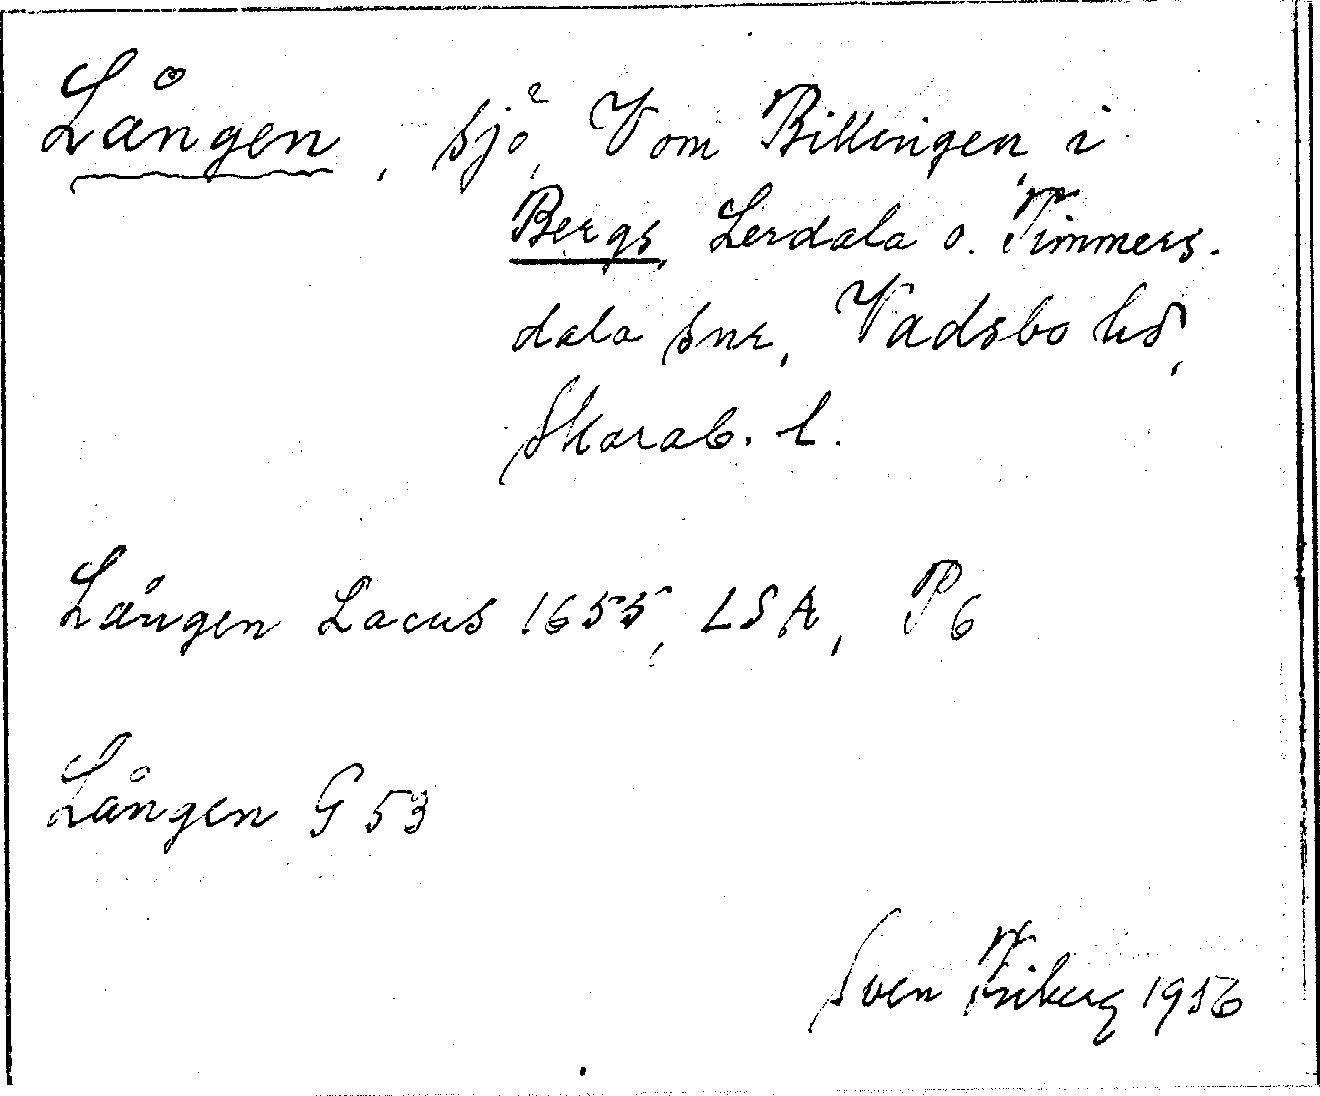 Lången, sjö, V om Billingen, i
Bergs, Lerdala o. Timmers-
dala snr, Vadsbo hd,
Skarab. l.
Lången Lacus 1655, LSA, P6
Lången G 53
Sven Friberg 1956